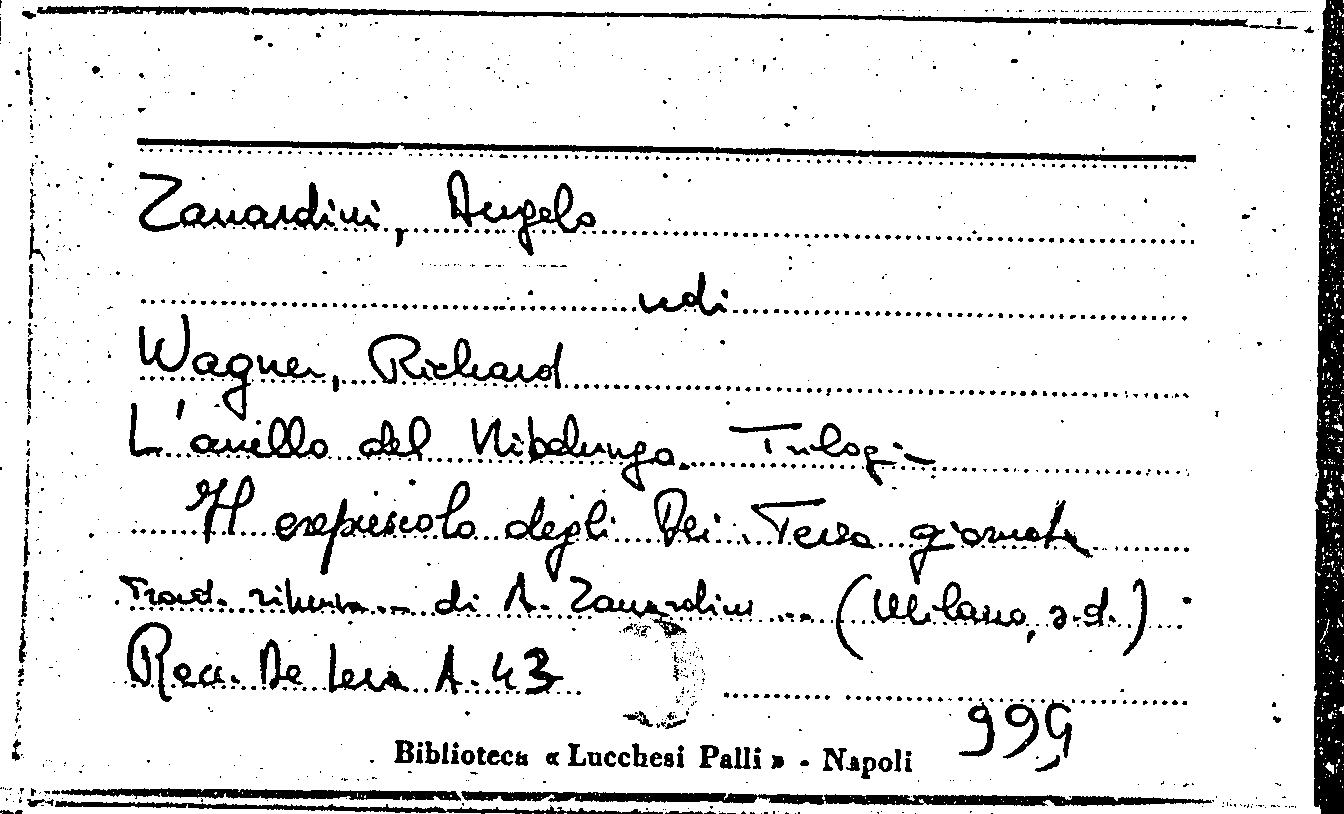 Zanardini, Angelo
vedi
Wagner, Richard
L'anello del Nibelungo. Trilogia
Il crepuscolo degli Dei. Terza giornata
Trad. ritmica... di A. Zanardini ... (Milano, s.d.)
Racc. De Leva A. 43
999
Biblioteca « Lucchesi Palli » - Napoli